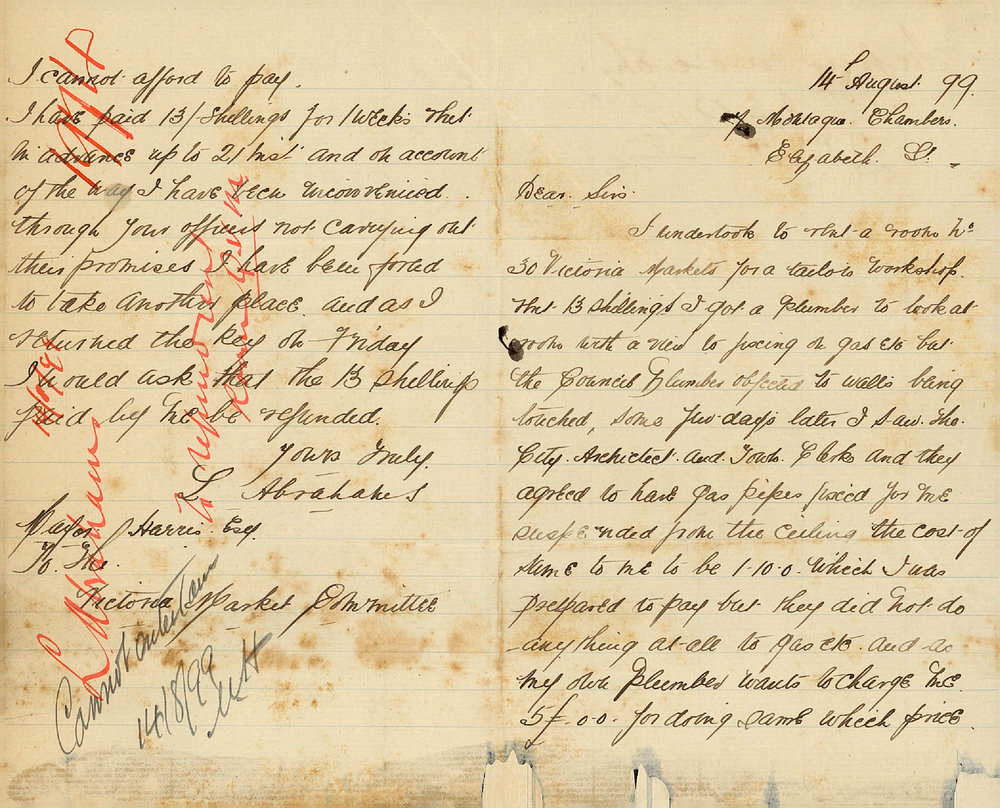 14th August 99
c/o Montague Chambers
Elizabeth St.
Dear Sirs
I undertook to rent a room No
30 Victoria Markets for a tailors workshop.
rent 13 shillings I got a plumber to look at
room with a view to fixing on gas etc but
the Council Plumber objected to walls being
touched, some few days later I saw the
City Architect and Town Clerks and they
agreed to have gas pipes fixed for me
suspended from the ceiling the cost of
same to me to be 1-10-0 which I was
prepared to pay but they did not do
anything at all to gas etc and as
my own Plumber wants to charge me
5£.0.0. for doing same which price
I cannot afford to pay.
I have paid 13/ shillings for 1 weeks rent
in advance up to 21 inst and on account
of the way I have been inconvenienced
through your officers not carrying out
their promises I have been forced
to take another place and as I
returned the key on Friday
I would ask that the 13 shillings
paid by me be refunded.
Yours Truly
L Abrahams
Mayor J Harris Esq
To The
Victoria Market Committee
L Abrahams
to
Cannot entertain
14/8/99